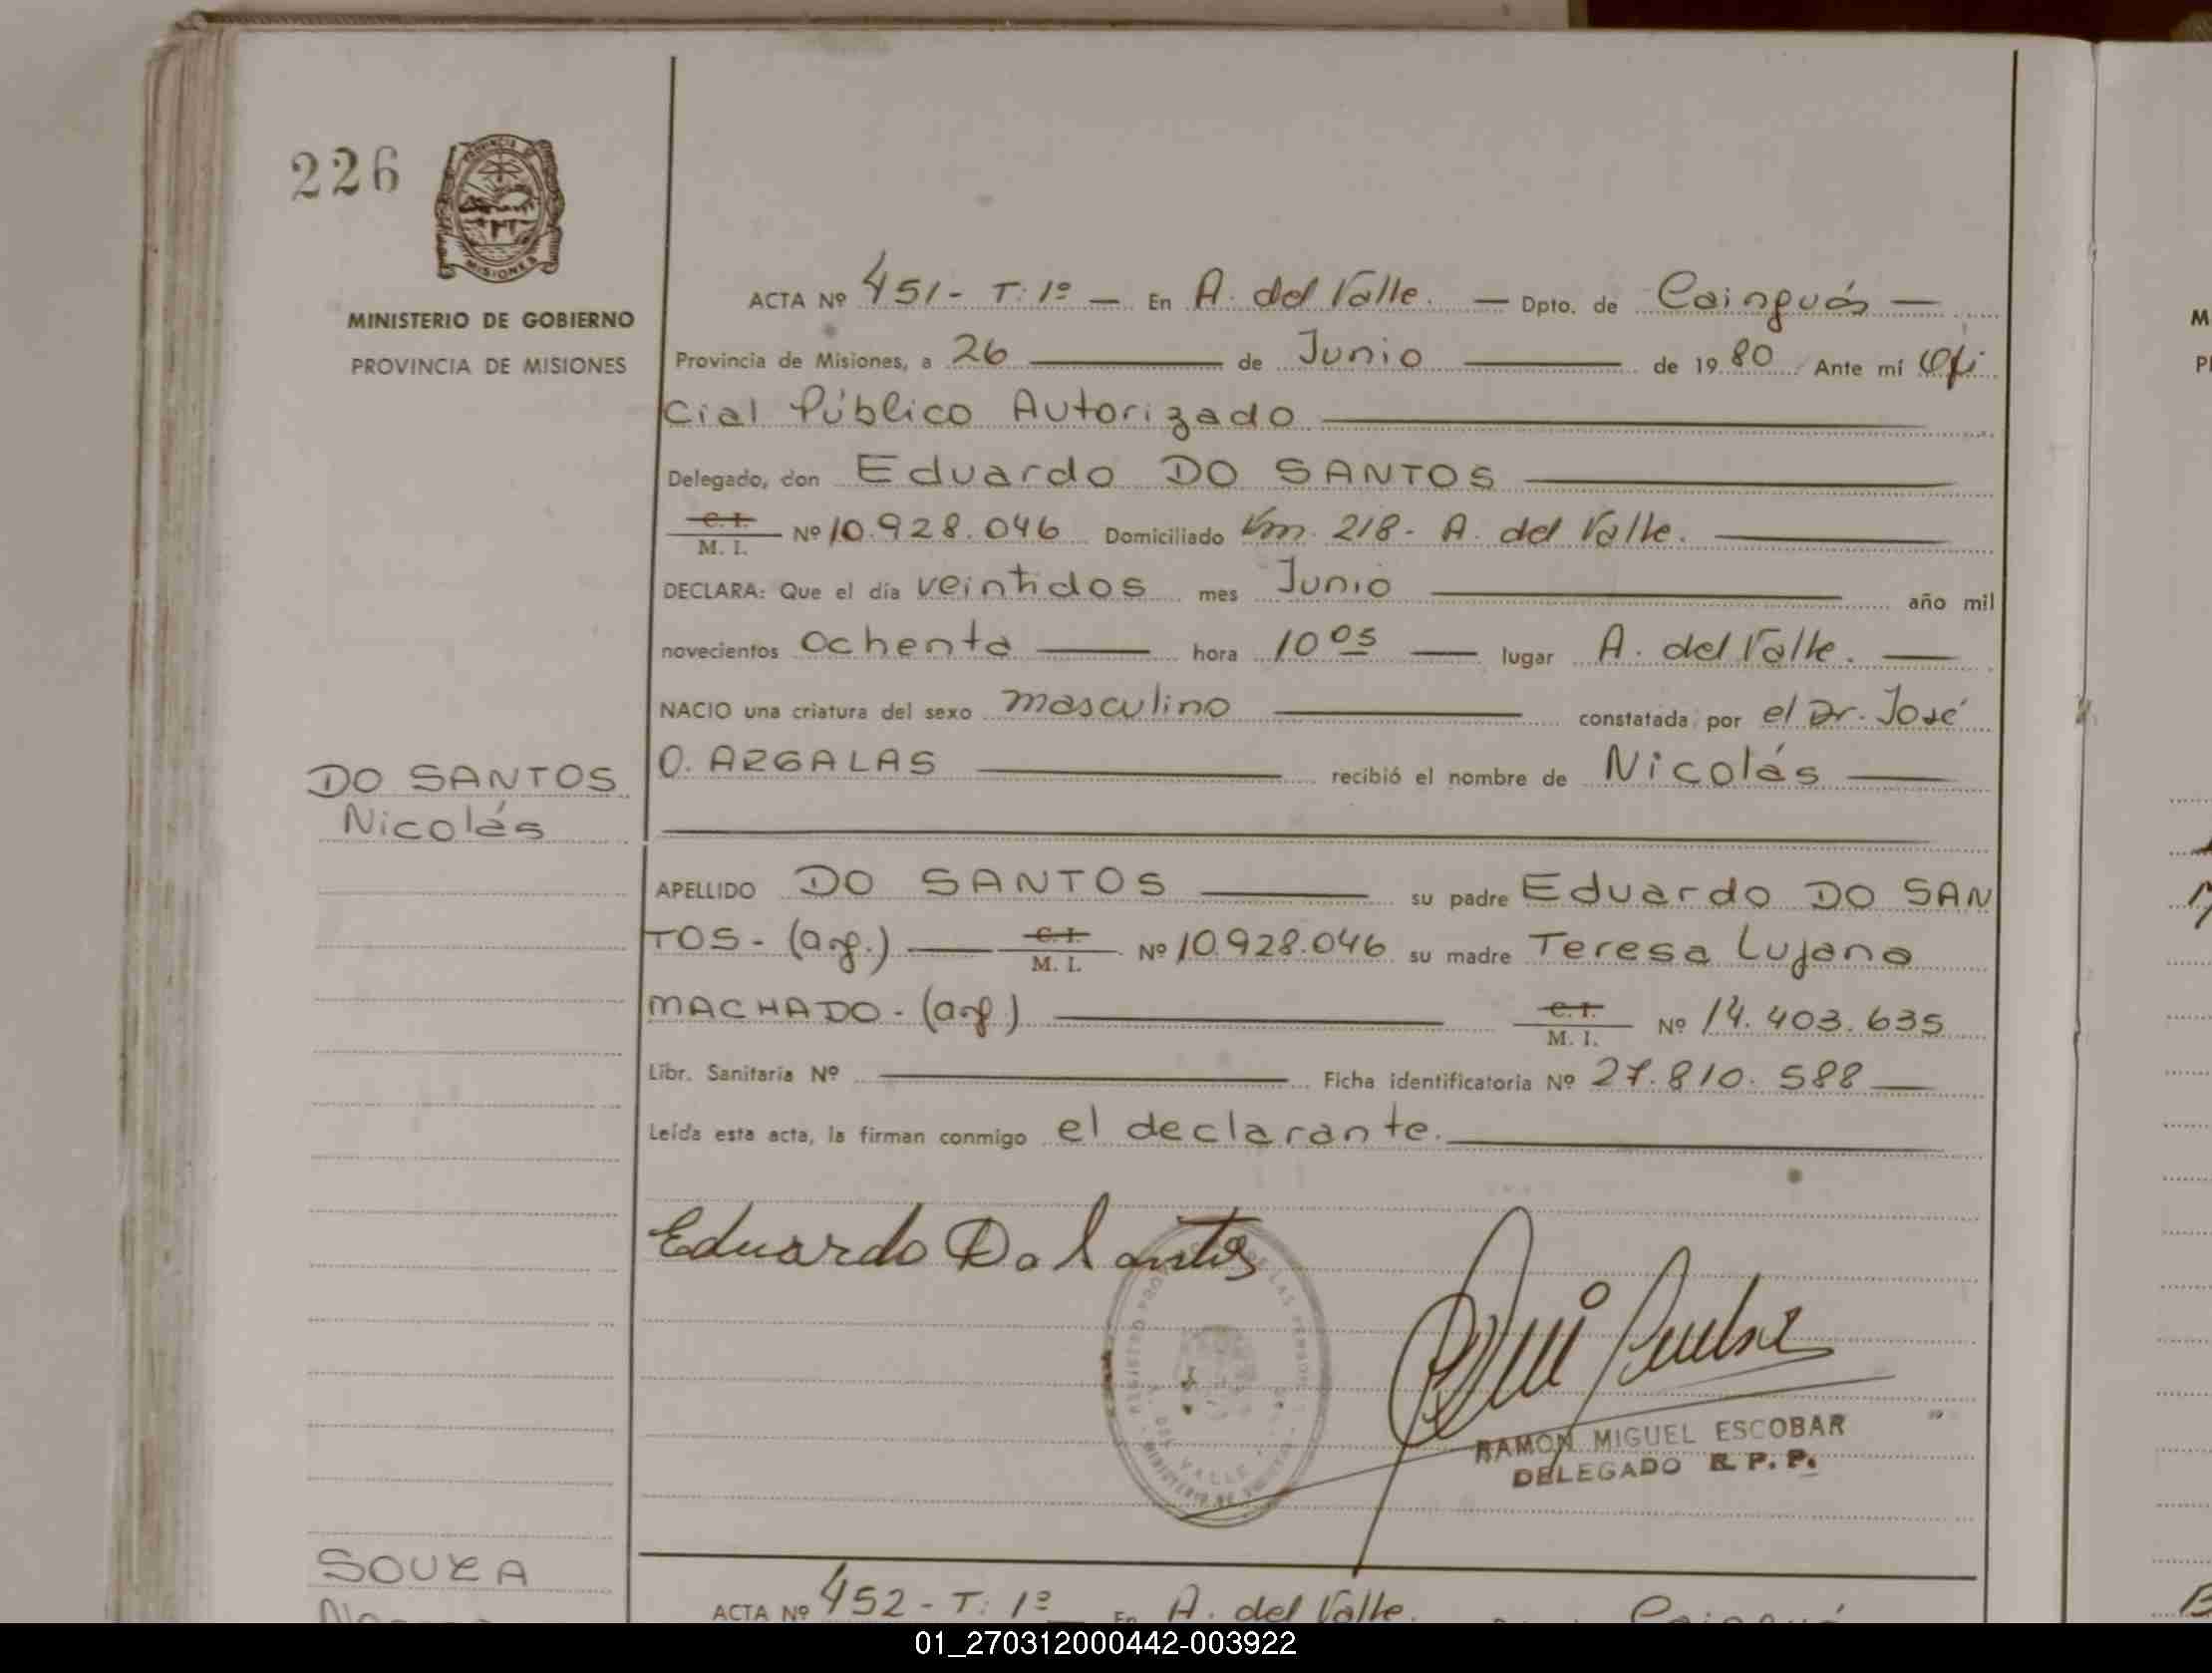 226
PROVINCIA DE
MISIONES
MINISTERIO DE GOBIERNO
PROVINCIA DE MISIONES
ACTA Nº 451 - T: 1º — En A. del Valle. — Dpto. de Cainguás —
Provincia de Misiones, a 26 — de Junio — de 1980 Ante mí Ofi
cial Público Autorizado
Delegado, don Eduardo DO SANTOS
C. I.
M. I. Nº 10.928.046 Domiciliado Km. 218 - A. del Valle.
DECLARA: Que el día veintidos mes Junio — año mil
novecientos ochenta — hora 10 05 — lugar A. del Valle. —
NACIO una criatura del sexo masculino — constatada por el Dr. José
O. ARGALAS — recibió el nombre de Nicolás —
DO SANTOS
Nicolás
APELLIDO DO SANTOS — su padre Eduardo DO SAN
TOS - (arg.) — C. I. M. I. Nº 10.928.046 su madre Teresa Lujana
MACHADO - (arg) — C. I. M. I. Nº 14.403.635
Libr. Sanitaria Nº — Ficha identificatoria Nº 27.810.588 —
Leída esta acta, la firman conmigo el declarante.
Eduardo Do Santos
DEL VALLE
RAMON MIGUEL ESCOBAR
DELEGADO R. P. P.
SOUZA
ACTA Nº 452 - T: 1º — En A. del Valle.
01_270312000442-003922